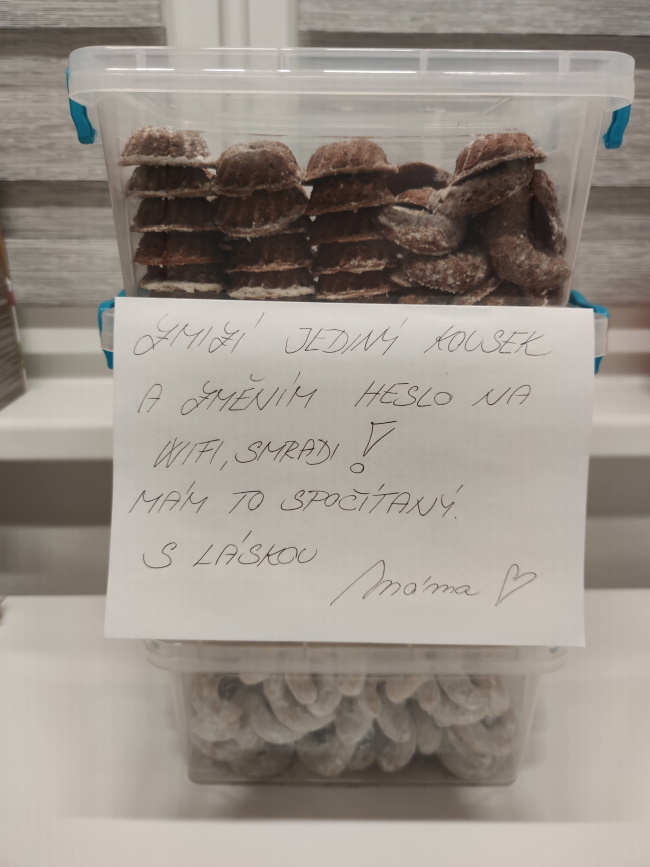 ZMIZÍ JEDINÝ KOUSEK
A ZMĚNÍM HESLO NA
WIFI, SMRADI!
MÁM TO SPOČÍTANÝ.
S LÁSKOU
Máma ♡